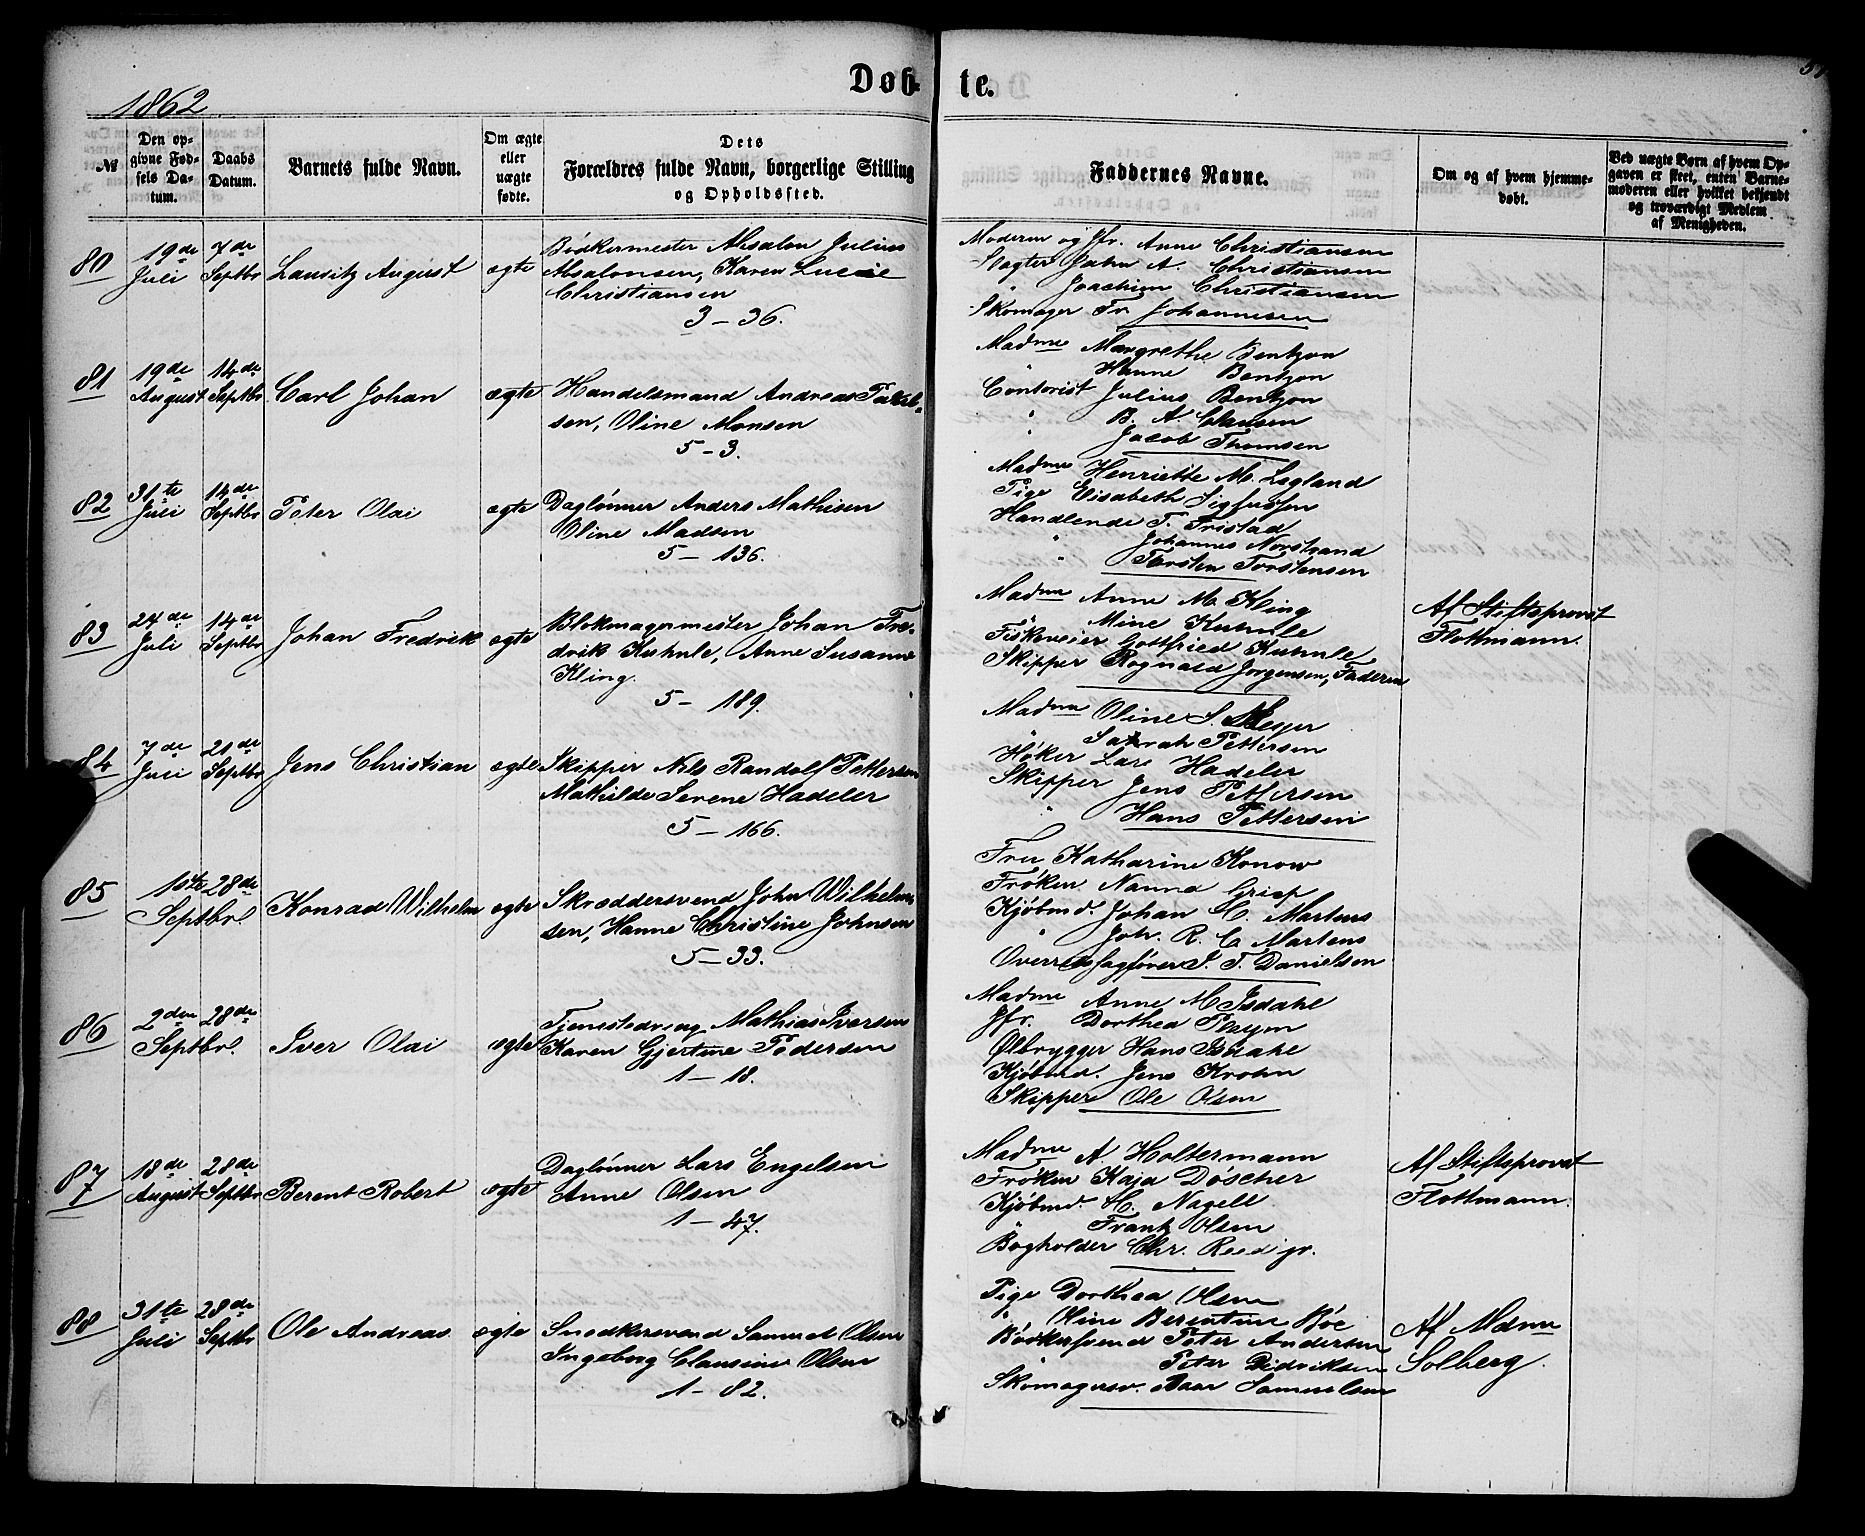 Døb- te.
1862
№
Den opgivne Fødsels Datum.
Daabs Datum.
Barnets fulde Navn.
Om ægte eller uægte fødte.
Dets Forældres fulde Navn, borgerlige Stilling og Opholdssted.
Faddernes Navne.
Om og af hvem hjemmedøbt.
Ved uægte Børn af hvem Opgaven er skeet, enten Barnemoderen eller hvilket bekjendt og troværdigt Medlem af Menigheden.
80
19de Juli
7de Septbr
Lauritz August
ægte
Bødkermester Absalon Julius
Absalonsen, Karen Lucie
Christiansen
3 – 36.
Moderen og Jfr. Anne Christiansen
Slagter John A. Christiansen
" Joachim Christiansen
Skomager Fr Johannesen
81
19de August
14de Septbr
Carl Johan
ægte
Handelsmand Andreas
sen, Oline Monsen
5 – 3.
Madme Margrethe Bentzon
" Hanne Bentzon
Contorist Julius Bentzon
" B. A. Clausen
" Jacob Thomsen
82
31te Juli
14de Septbr
Peter Olai
ægte
Daglønner Anders Mathisen
Oline Madsen
5 – 136.
Madme Henriette M. Legland
Pige Elisabeth Sigfusson
Handlende T. Tristad
" Johannes Norstrand
Torsten Torstensen
83
24de Juli
14de Septbr
Johan Fredrik
ægte
Blokmagermester Johan Fre-
drik Kuhnle, Anne Susanne
Kling.
5 – 189.
Madme Anne M. Kling
" Mine Kuhnle
Fiskeveier Gottfried Kuhnle
Skipper Rognald Jørgensen, Faderen
Af Stiftsprovst
Flottmann.
84
7de Juli
21de Septbr
Jens Christian
ægte
Skipper Nils Randolf Pettersen
Mathilde Serene Hadeler
5 – 166.
Madme Oline S. Meyer
" Sarah Pettersen
Høker Lars Hadeler
Skipper Jens Pettersen
" Hans Pettersen
85
1ste Septbr.
28de
Konrad Wilhelm
ægte
Skræddersvend John Wilhelm-
sen, Hanne Christine Johnsen
5 – 33.
Fru Katharine Konow
Frøken Nanna Grieg
Kjøbmd. Johan C. Martens
" Joh. R. C. Martens
Overretssagfører J. T. Danielsen
86
2den Septbr.
28de
Iver Olai
ægte
Tjenestedreng Mathias Iversen
Karen Gjertine Pedersen
1 – 18.
Madme Anne M Isdahl
Jfr. Dorthea Pleym
Ølbrygger Hans Isdahl
Kjøbmd. Jens Krohn
Skipper Ole Olsen
87
18de August
28de Septbr
Berent Robert
ægte
Daglønner Lars Engelsen
Anne Olsen
1 – 47.
Madme A Holtermann
Frøken Kaja Döscher
Kjøbmd. H. Nagell
Frantz Olsen
Bogholder Chr. Reed jr.
Af Stiftsprovst
Flottmann.
88
31te Juli
28de Septbr
Ole Andreas
ægte
Snedkersvend Samuel Olsen
Ingeborg Clausine Olsen
1 – 82.
Pige Dorthea Olsen
" Oline Berentine Bøe
Bødkersvend Peter Andersen
" Peter Didriksen
Skomagersv. Samuelsen
Af Mdme
Solberg.